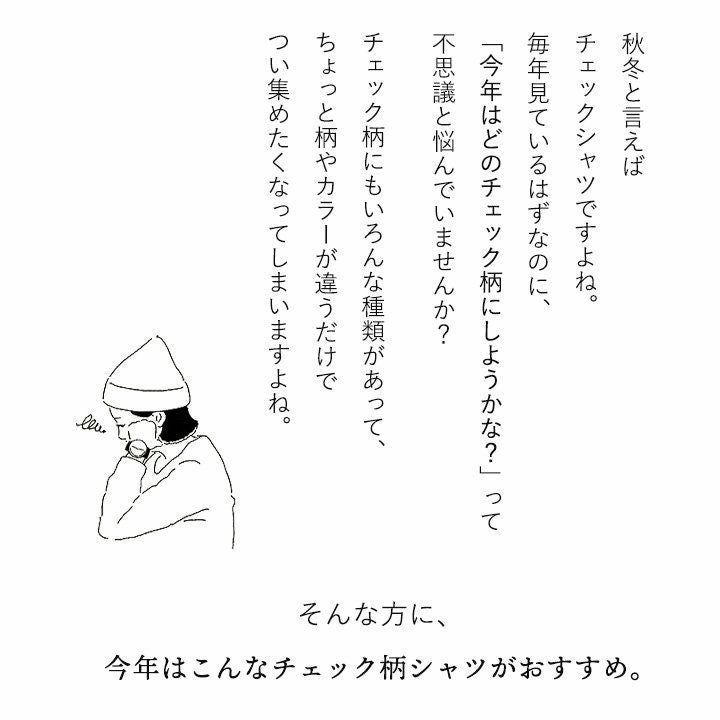 秋冬と言えば
チェックシャツですよね。
毎年見ているはずなのに、
「今年はどのチェック柄にしようかな？」って
不思議と悩んでいませんか？
チェック柄にもいろんな種類があって、
ちょっと柄やカラーが違うだけで
つい集めたくなってしまいますよね。
そんな方に、
今年はこんなチェック柄シャツがおすすめ。